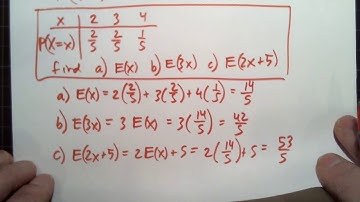 x 2 3 4
P(X=x) 2/5 2/5 1/5
find a) E(x) b) E(3x) c) E(2x+5)
a) E(x) = 2(2/5) + 3(2/5) + 4(1/5) = 14/5
b) E(3x) = 3 E(x) = 3(14/5) = 42/5
c) E(2x+5) = 2E(x)+5 = 2(14/5)+5 = 53/5